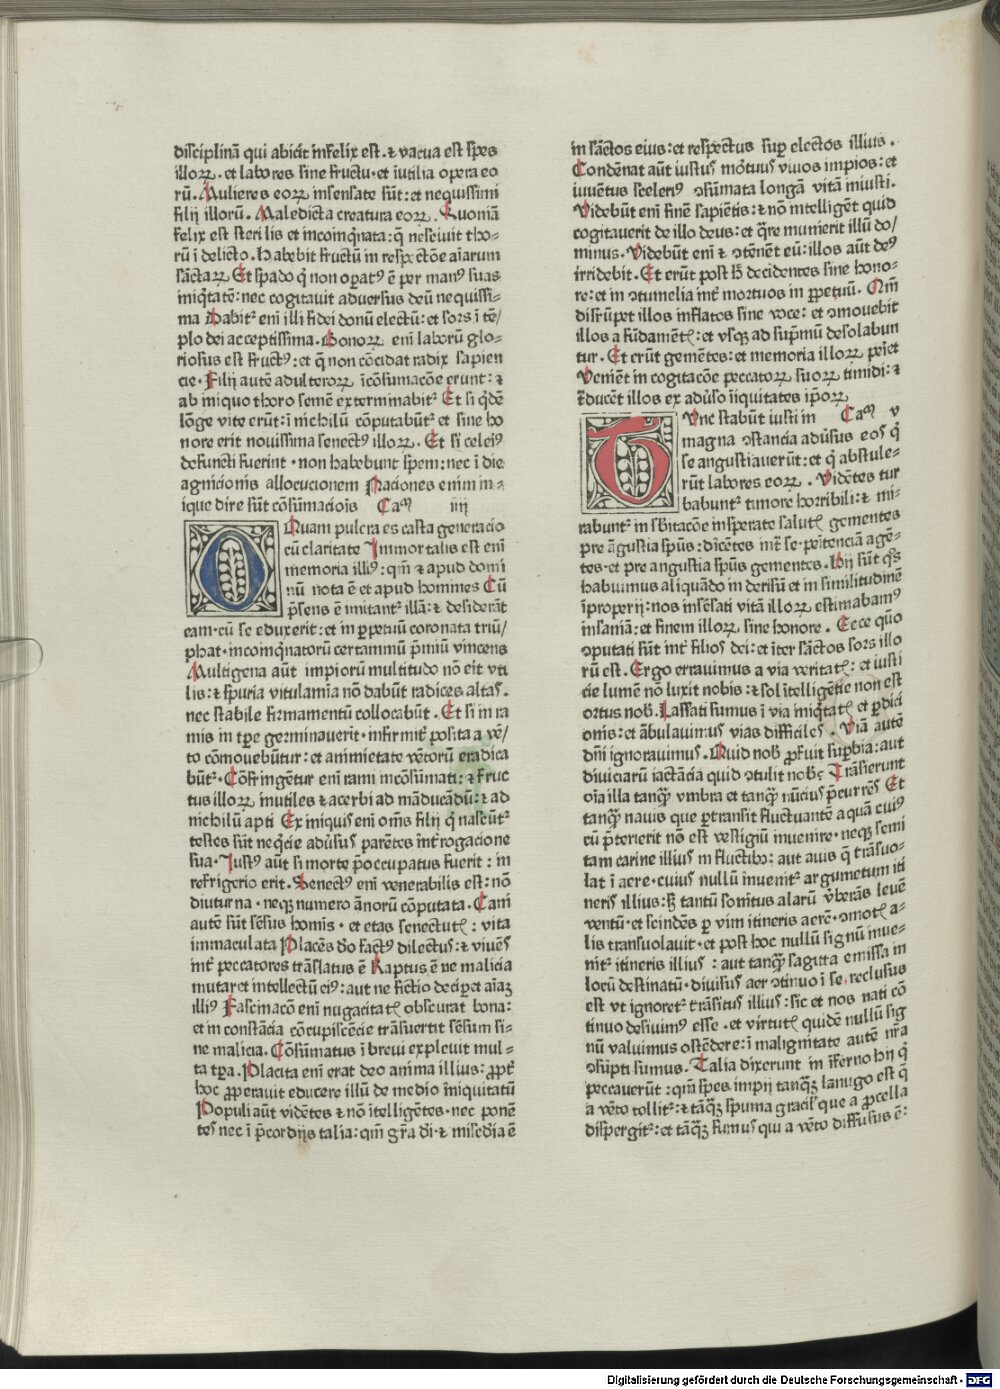 disciplinā qui abicit infelix est.⁊ vacua est spes
illoꝝ.et labores sine fructu.et īutilia opera eo
rū.Mulieres eoꝝ insensate sūt:et nequissimi
filij illorū.Maledicta creatura eoꝝ.Quoniā
felix est sterilis et incoinq̄nata:q̄ nesciuit tho⸗
rū ī delicto.habebit fructū in respectōe aīarum
sāctaꝝ Et spado q̄ non oꝑatꝰ ē per manꝰ suas
iniq̄tatē:nec cogitauit aduersus deū nequissi⸗
ma Dabit᷑ enī illi fidei donū electū:et sors ī tē/
plo dei acceptissima.Bonoꝝ enī laborū glo⸗
riosus est fructꝰ:et q̄ non cōcidat radix sapien
cie.Filij autē adulteroꝝ īcōsumacōe erunt:⁊
ab iniquo thoro semē exterminabit᷑ Et si q̄dē
lōge vite erūt:ī nichilū cōputabūt᷑ et sine ho
nore erit nouissima senectꝰ illoꝝ.Et si celeiꝰ
defuncti fuerint.non habebunt spem:nec ī die
agnicionis allocucionem Naciones enim in⸗
ique dire sūt cōsūmaciois Caᵐ iiij
O Quam pulcra es casta generacio
cū claritate Immortalis est enī
memoria illiꝰ:qm̄ ⁊ apud domi
nū nota ē et apud homines Cū
p̄sens ē imitant᷑ illā:⁊ desiderāt
eam.cū se eduxerit:et in ꝑpetuū coronata triū/
phat.incoinq̄natorū certammū p̄miū vincens
Multigena aūt impiorū multitudo nō eīt vti
lis:⁊ spuria vitulamīa nō dabūt radices altas.
nec stabile firmamentū collocabūt.Et si in ra
mis in tp̄e germinauerīt.infirmit᷑ posita a vē/
to cōmouebūtur:et animietate vētorū eradica
būt᷑.Cōfringētur enī rami incōsūmati:⁊ fruc
tus illoꝝ inutiles ⁊ acerbi ad māducādū:⁊ ad
nichilū apti Ex iniquis enī oīns filij q̄ nascūt᷑
testes sūt neq̄cie adūsus parētes īnt̄rogacione
sua.Iustꝰ aūt si morte p̄occupatus fuerit:in
refrigerio erit.Senectꝰ enī venerabilis est:nō
diuturna.neqꝫ numero ānorū cōputata.Cani
autē sūt sēsus homīs.et etas senectutꝭ:vita
immaculata Placēs deo factꝰ dilectus:⁊ viuēs
int̄ peccatores trāslatus ē Raptus ē ne malicia
mutaret intellectū eiꝰ:aut ne fictio deciꝑet aīaꝫ
illiꝰ Fascinacō enī nugacitatꝭ obscurat bona:
et in constācia cōcupiscēcie trāsuertit sēsum si⸗
ne malicia.Cōsūmatus ī breui expleuit mul⸗
ta tp̄a.Placita enī erat deo anima illius:ꝓpt̄
hoc ꝓperauit educere illū de medio īniquitatū
Populi aūt vidētes ⁊ nō ītelligētes.nec ponē
tes nec ī p̄cordijs talia:qm̄ gr̄a dī.⁊ misēdia ē
in sāctos eius:et respectus suꝑ electos illius.
Condēnat aūt iustus mōtuus viuos impios:et
iuuētus sceleriꝰ ↄsūmata longā vitā iniusti.
Videbūt enī finē sapiētis:⁊ nō intelligēt quid
cogitauerit de illo deus:et q̄re munierit illū do/
minus.Videbūt enī ⁊ ↄtēnēt eū:illos aūt deꝰ
irridebit.Et erūt post hᷓ decidentes sine hono⸗
re:et in ↄtumelia int̄ mortuos in ꝑpetuū.Qm̄
disrūpet illos inflatos sine voce:et ↄmouebit
illos a fūdamētꝭ:et vsqꝫ ad sup̄mū desolabun
tur.Et erūt gemētes:et memoria illoꝝ peīet
Veniēt in cogitacōe peccatoꝝ suoꝝ timidi:⁊
t̄ducēt illos ex adūso īiquitates ip̄oꝝ
T Vnc stabūt iusti in Caᵐ v
magna ↄstancia adūsus eos q̄
se angustiauerūt:et q̄ abstule⸗
rūt labores eoꝝ.Vidētes tur
babunt᷑ timore horribili:⁊ mi⸗
rabunt᷑ in sb̄itacōe insperate salutꝭ gementes
pre āgustia spūs:dicētes int̄ se.peītenciā agē⸗
tes.et pre angustia spūs gementes.Hij sūt qͦs
habuimus aliquādo in derisū et in similitudinē
īproperij:nos insēsati vitā illoꝝ estimabamꝰ
insaniā:et finem illoꝝ sine honore.Ecce quō
ↄputati sūt int̄ filios dei:et iter sāctos sors illo
rū est.Ergo errauimus a via veritatꝭ:et iusti
cie lumē nō luxit nobis:⁊ sol ītelligētie non est
ortus nob̄.Lassati sumus ī via iniq̄tatꝭ et ꝑdici
onis:et ābulauimus vias difficiles.Viā autē
dn̄i ignorauimus.Quid nob̄ ꝓfuit suꝑbia:aut
diuiciarū iactācia quid ↄtulit nobꝭ Trāsierunt
oīa illa tanqꝫ vmbra et tanqꝫ nūcius p̄currēs Et
tanqꝫ nauis que ꝑtransit fluctuantē aquā cuiꝰ
cū p̄terierit nō est vestigiū inuenire.neqꝫ semi
tam carine illius in fluctibꝫ:aut auis q̄ trāsuo⸗
lat ī aere.cuius nullū inuenit᷑ argumetum iti
neris illius:sꝫ tantū sonitus alarū v̄berās leuē
ventū.et scindēs ꝑ vim itineris aerē.ↄmotꝭ a⸗
lis transuolauit.et post hoc nullū signū inue⸗
nit᷑ itineris illius:aut tanqꝫ sagitta emissa in
locū destinatū.diuisus aer ↄtinuo ī se reclusus
est vt ignoret᷑ trāsitus illius:sic et nos nati cō
tinuo desiuimꝰ esse.et virtutꝭ quidē nullū sig
nū valuimus ostēdere:ī malignitate autē nr̄a
ↄsūpti sumus.Talia dixerunt in īferno hij q̄
peccauerūt:qm̄ spes impij tanqꝫ lanugo est q̄
a vēto tollit᷑:⁊ tāqꝫ spuma gracil̓ que a ꝓcella
dispergit᷑:et tāqꝫ fumus qui a vēto diffusus ē:
Digitalisierung gefördert durch die Deutsche Forschungsgemeinschaft - DFG